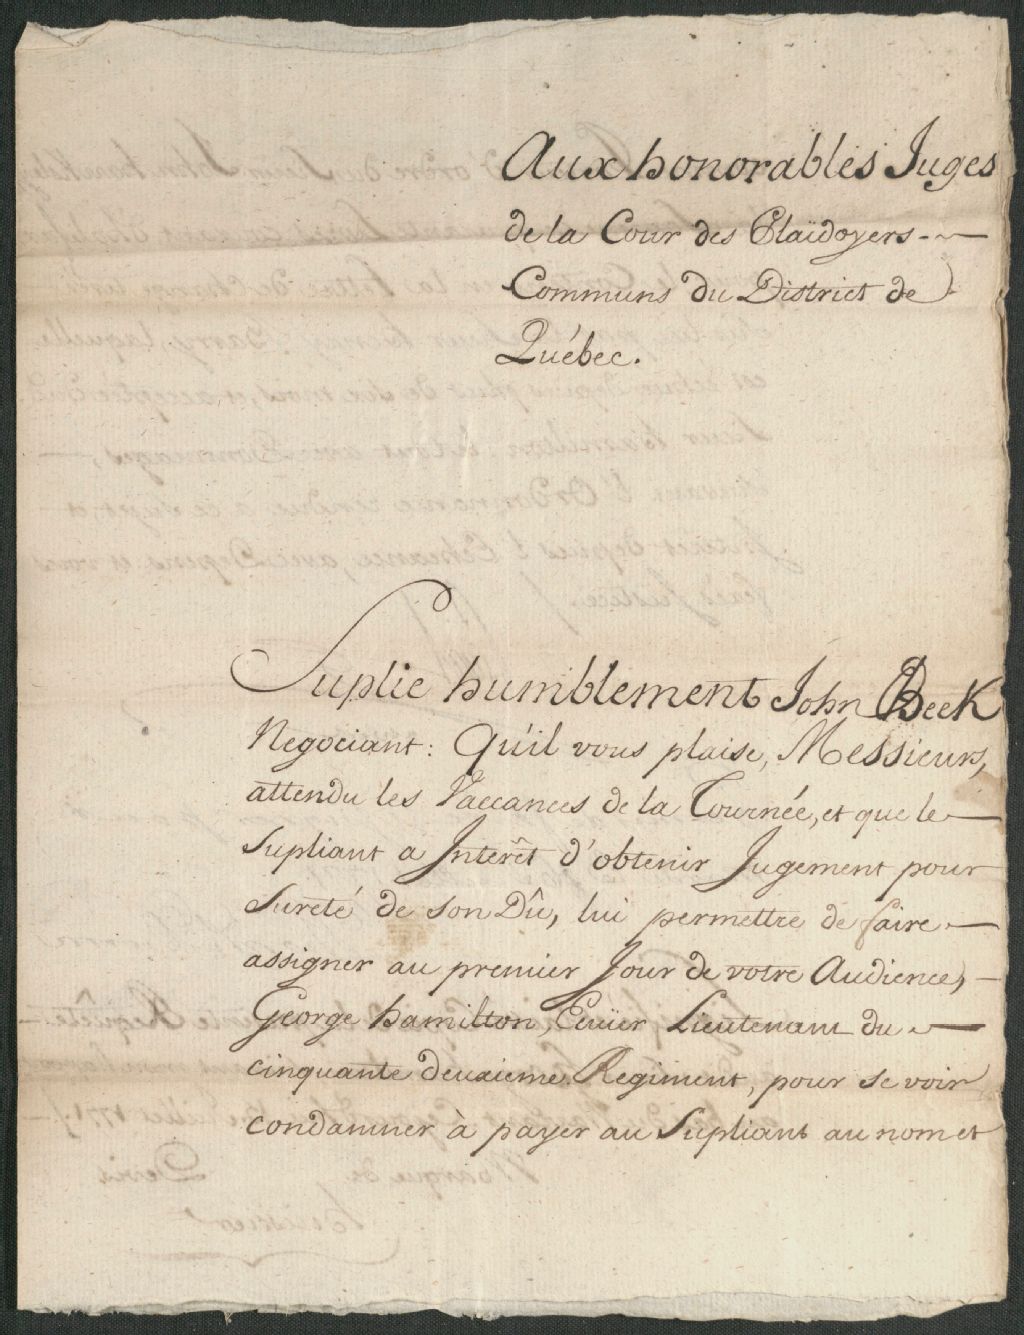 Aux honorables Juges
de la Cour des Plaïdoyers -
Communs du District de
Québec.
Suplie humblement John Beek
Negociant: Qu'il vous plaise, Messieurs,
attendu les Vaccances de la Tournée, et que le
Supliant a Interêt d'obtenir Jugement pour
Sureté de son Dû, lui permettre de faire
assigner au premier Jour de votre Audience,
George hamilton, Ecuïer Lieutenant du
cinquante deuxieme Regiment, pour se voir
condamner à payer au Supliant au nom et